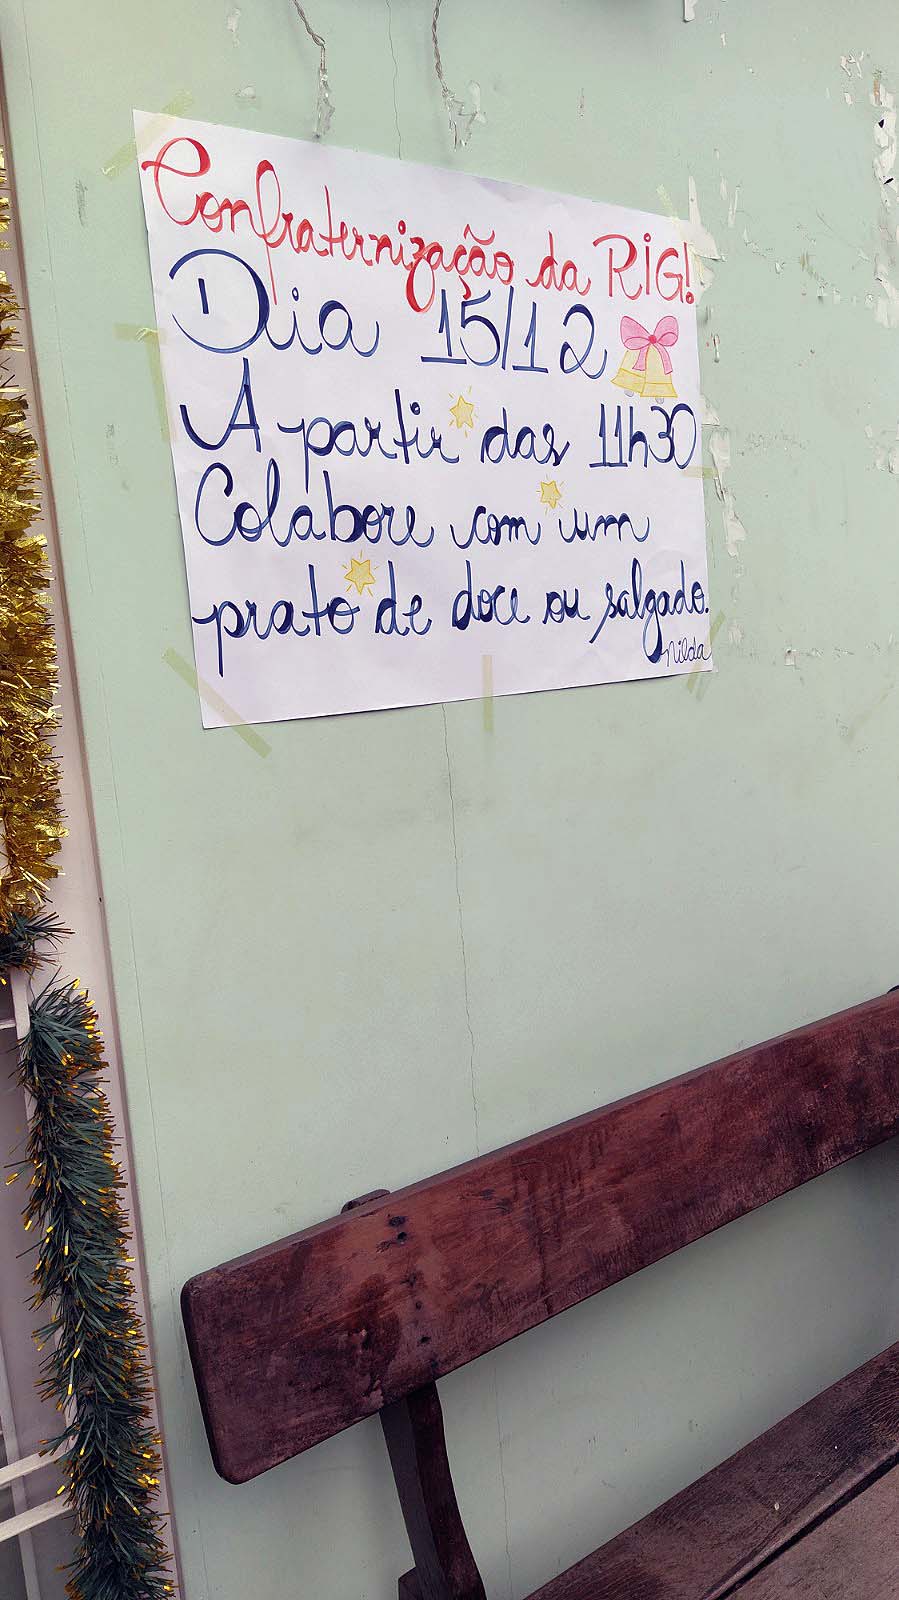 Confraternização da RIG!
Dia 15/12
A partir das 11h30
Colabore com um
prato de doce ou salgado.
Nilda